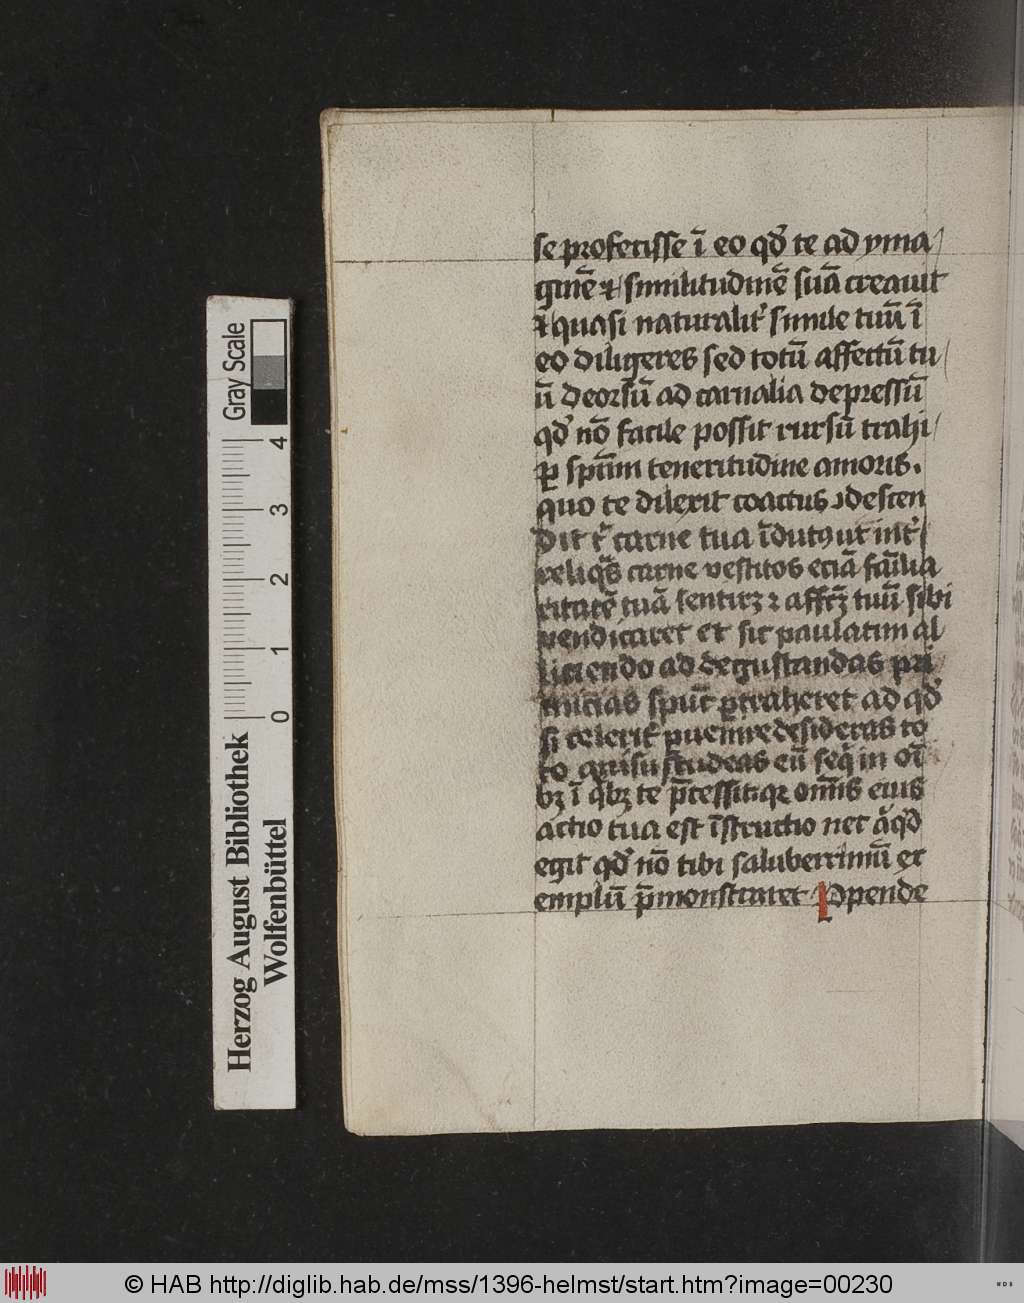 se profecisse ī eo qd̓ te ad yma/
ginē ⁊ similitudinē suā creauit
⁊ quasi naturalit̓ simile tuū ī
eo diligeres sed totū affectū tu/
ū deorsū ad carnalia depressū
qd̓ nō facile possit rursū trahi/
ꝑ spūm teneritudine amoris.
quo te dilexit coactus ꝯdescen
dit t̓ carne tua īdutꝰ ut int̓
reliqͣs carne vestitos eciā fāılia
ritatē tuā sentirꝫ ⁊ affcꝫ tuū sibi
vendicaret et sic paulatim al
liciendo ad degustandas pri
micias spūt ꝑtraheret ad qd̓
si celerit̓ ꝑuenire desideras to
to quisu studeas eū seq̄ in oī
bꝫ ī qͥbꝫ te p̄cessit qꝛ omīs eius
actio tua est īstructio nec aͥqd̓
egit qd̓ nō tibi saluberrimū ex
emplū p̄monstraret Ppende
Gray Scale
4
3
2
1
0
Herzog August Bibliothek
Wolfenbüttel
© HAB http://diglib.hab.de/mss/1396-helmst/start.htm?image=00230
WDB